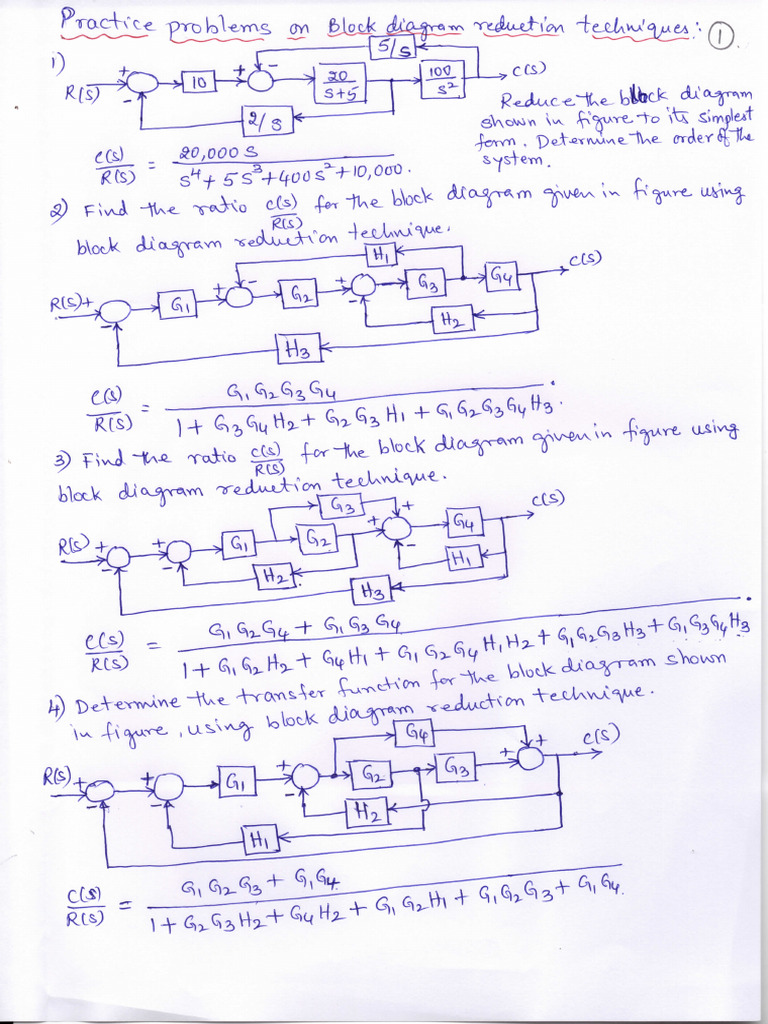 Practice problems on Block diagram reduction techniques: 1
1)
5/s
R(s) + - 10 + - 20/s+5 100/s² C(s)
2/s
Reduce the block diagram
shown in figure to its simplest
form. Determine the order of the
system.
C(s)/R(s) = 20,000 S / S⁴ + 5S³ + 400S² + 10,000.
2) Find the ratio C(s)/R(s) for the block diagram given in figure using
block diagram reduction technique.
H1
R(s) + - G1 + - G2 + - G3 G4 C(s)
H2
H3
C(s)/R(s) = G1 G2 G3 G4 / 1 + G3 G4 H2 + G2 G3 H1 + G1 G2 G3 G4 H3.
3) Find the ratio C(s)/R(s) for the block diagram given in figure using
block diagram reduction technique.
G3 +
R(s) + - + - G1 G2 + - G4 C(s)
H2 H1
H3
C(s)/R(s) = G1 G2 G4 + G1 G3 G4 / 1 + G1 G2 H2 + G4 H1 + G1 G2 G4 H1 H2 + G1 G2 G3 H3 + G1 G3 G4 H3
4) Determine the transfer function for the block diagram shown
in figure, using block diagram reduction technique.
G4 +
R(s) + - + - G1 + - G2 G3 + C(s)
H2
H1
C(s)/R(s) = G1 G2 G3 + G1 G4 / 1 + G2 G3 H2 + G4 H2 + G1 G2 H1 + G1 G2 G3 + G1 G4.